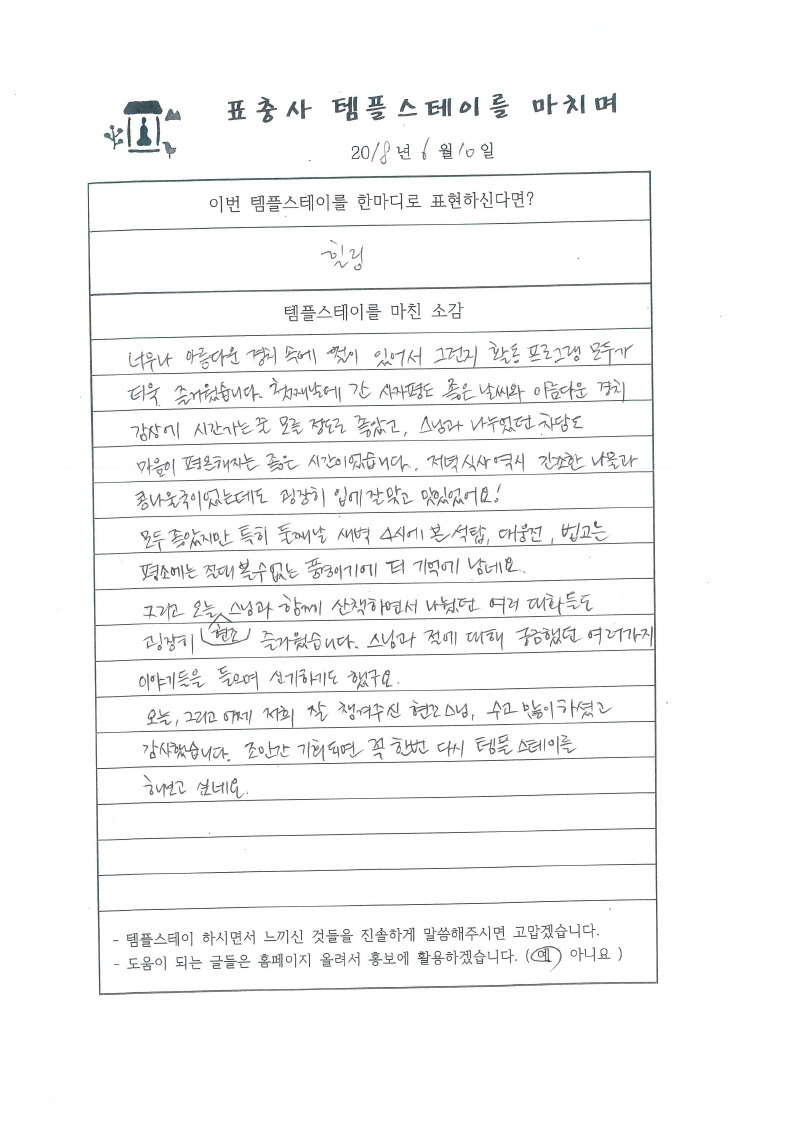 표충사 템플스테이를 마치며
2018년 6월 10일
이번 템플스테이를 한마디로 표현하신다면?
힐링
템플스테이를 마친 소감
너무나 아름다운 경치 속에 절이 있어서 그런지 활동 프로그램 모두가
더욱 즐거웠습니다. 첫째날에 간 사자평도 좋은 날씨와 아름다운 경치
감상에 시간가는 줄 모를 정도로 좋았고, 스님과 나누었던 차담도
마음이 평온해지는 좋은 시간이었습니다. 저녁식사 역시 간소한 나물과
콩나물국이었는데도 굉장히 입에 잘맞고 맛있었어요!
모두 좋았지만 특히 둘째날 새벽 4시에 본 석탑, 대웅전, 법고는
평소에는 절대 볼수 없는 풍경이기에 더 기억에 남네요.
그리고 오늘 현소 스님과 함께 산책하면서 나눴던 여러 대화들도
굉장히 즐거웠습니다. 스님과 절에 대해 궁금했던 여러가지
이야기들을 들으며 신기하기도 했구요.
오늘, 그리고 어제 저희 잘 챙겨주신 스님, 수고 많이 하셨고
감사했습니다. 조만간 기회되면 꼭 한번 다시 템플스테이를
해보고 싶네요.
- 템플스테이 하시면서 느끼신 것들을 진솔하게 말씀해주시면 고맙겠습니다.
- 도움이 되는 글들은 홈페이지 올려서 홍보에 활용하겠습니다. (예 아니요 )